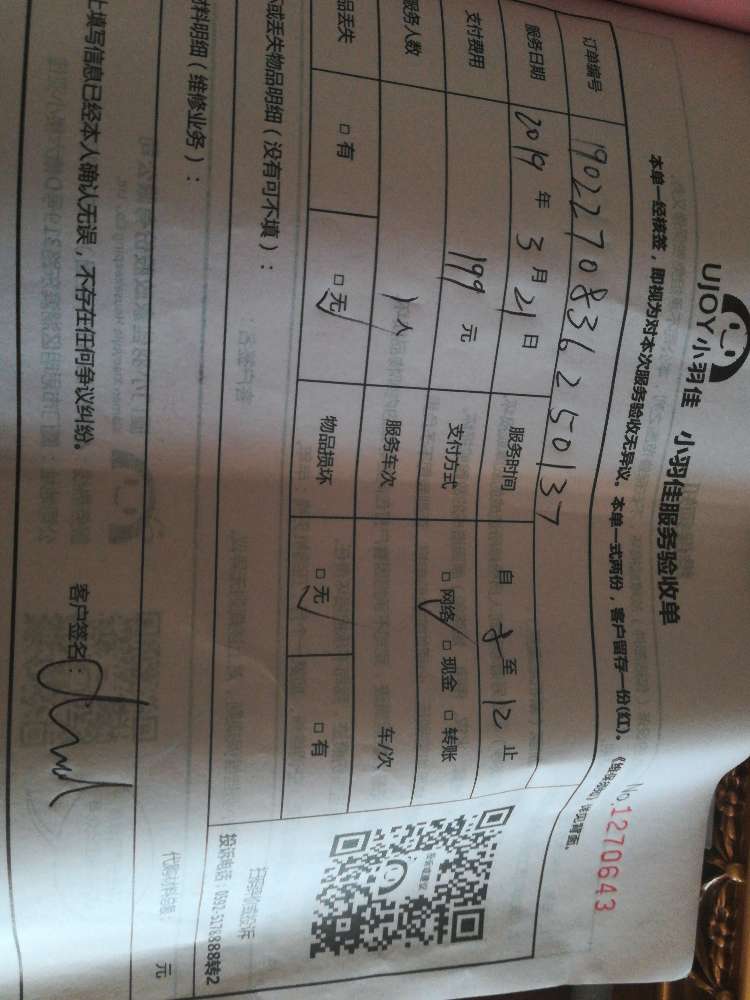 UJOY小羽佳 小羽佳服务验收单
No.1270643
本单一经核签，即视为对本次服务验收无异议。本单一式两份，客户留存一份(红)。
订单编号 1902270836250137
服务日期 2019 年 3 月 21 日 服务时间 自 至 12 止
支付费用 199 元 支付方式 □ 网络 □ 现金 □ 转账
服务人数 1 人 服务车次 车/次
品丢失 □ 有 □ 无 物品损坏 □ 无 □ 有
或丢失物品明细（没有可不填）：
扫描码可做投诉
投诉电话：0592-5176888转2
材料明细（维修业务）：
元
上填写信息已经本人确认无误，不存在任何争议纠纷。
客户签名：